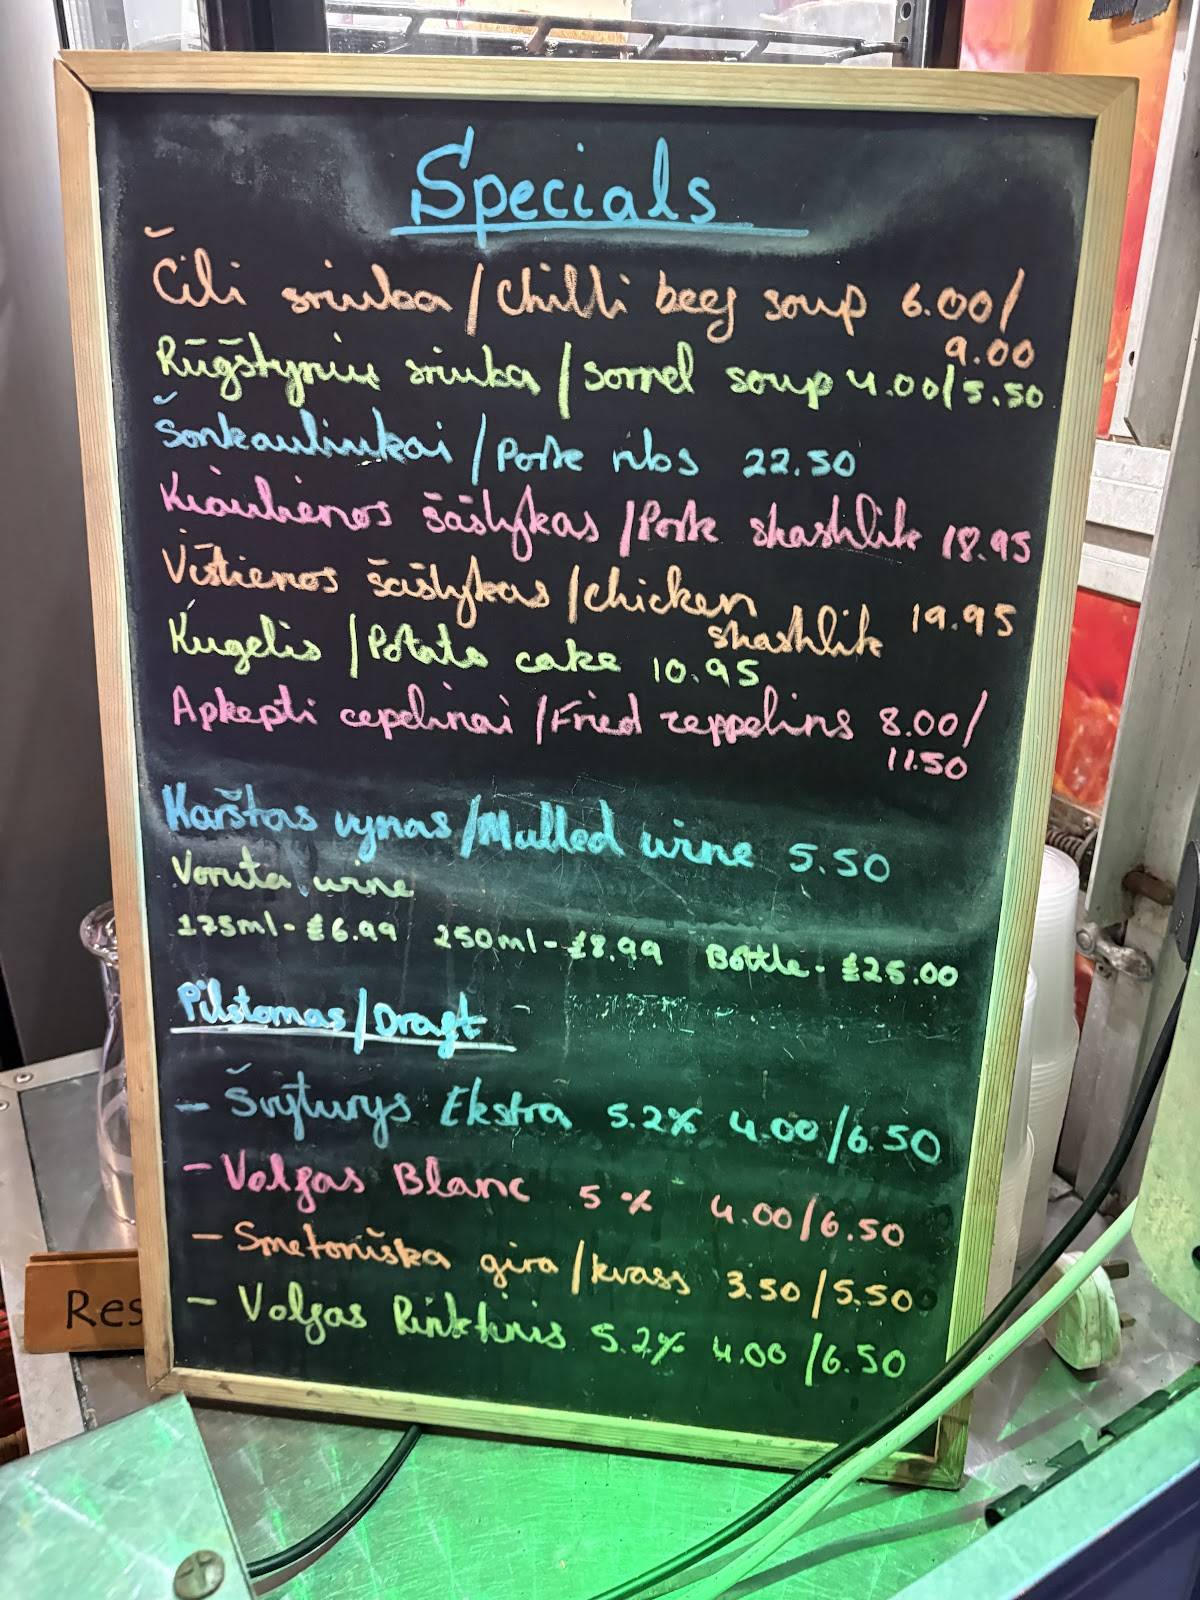 Specials
Čili sriuba / Chilli beef soup 6.00/
9.00
Rūgštynių sriuba / Sorrel soup 4.00/5.50
Šonkauliukai / Pork ribs 22.50
Kiaulienos šašlykas / Pork shashlik 18.95
Vištienos šašlykas / chicken 19.95
shashlik
Kugelis / Potato cake 10.95
Apkepti cepelinai / Fried zeppelins 8.00/
11.50
Karštas vynas / Mulled wine 5.50
Voruta wine
175ml - £6.99 250ml - £8.99 Bottle - £25.00
Pilstomas / Dragt
- Švyturys Ekstra 5.2% 4.00/6.50
- Volfas Blanc 5% 4.00/6.50
- Smetoniška gira / kvass 3.50/5.50
- Volfas Rinktinis 5.2% 4.00/6.50
Res